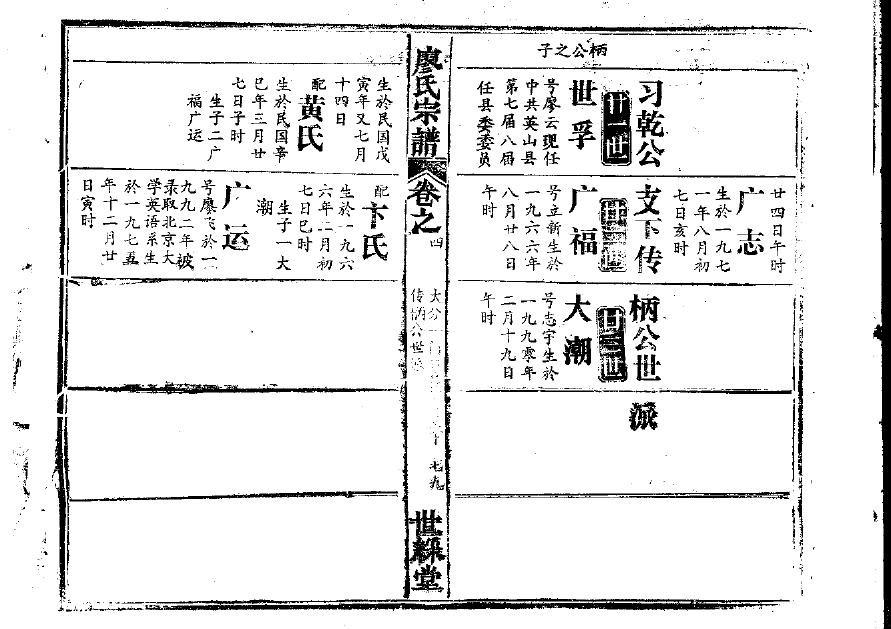 柄公之子
廿四日午时
广志
生於一九七
一年八月初
七日亥时
习乾公
支下传
柄公世
派
廿一世
世孚
号廖云现任
中共英山县
第七届八届
任县委委员
广福
号立新生於
一九六六年
八月廿八日
午时
廿三世
大潮
号志宇生於
一九九零年
二月十九日
午时
廖氏宗譜
卷之四
七九
世綵堂
生於民国戊
寅年又七月
十四日
配
黄氏
生於民国辛
巳年三月廿
七日子时
生子二广
福广运
配
卞氏
生於一九六
六年二月初
七日巳时
生子一大
潮
广运
号廖飞於一
九九二年被
录取北京大
学英语系生
於一九七五
年十二月廿
日寅时